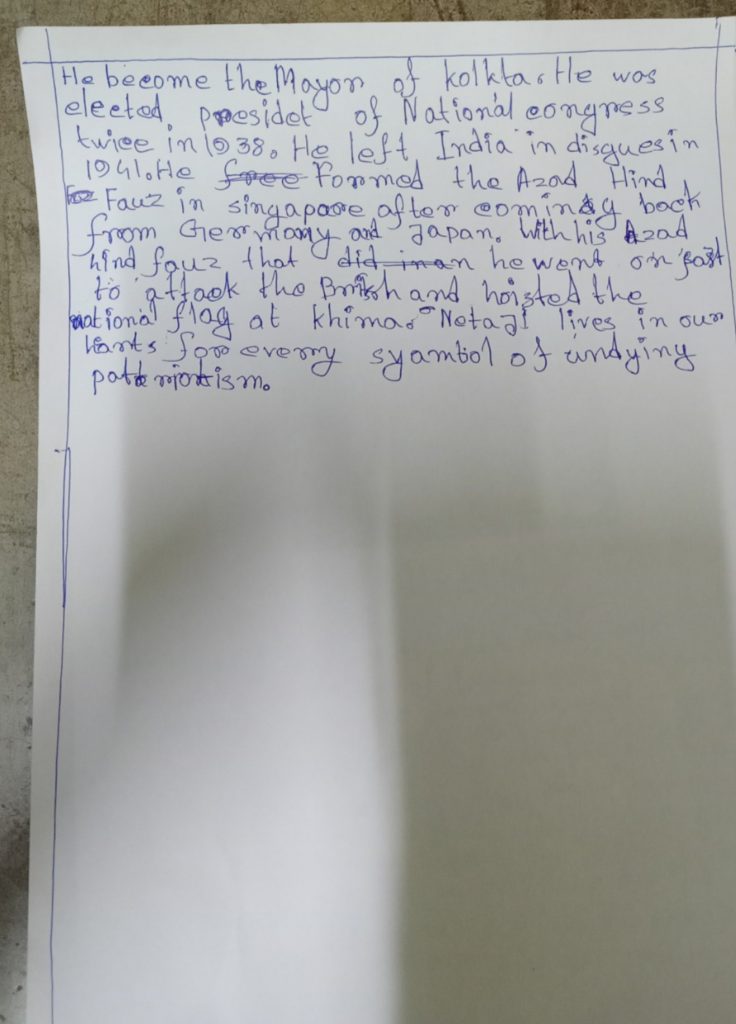 He become the Mayor of kolkta. He was
eleeted presidet of National congress
twice in 1938. He left India in disgues in
1941. He free Formed the Azad Hind
Fauz in singapore after coming back
from Germany and Japan. With his Azad
hind fauz that did inan he went on fast
to attack the British and hoisted the
national flag at khima. Netaji lives in our
harts for everry syambol of undying
patriotism.